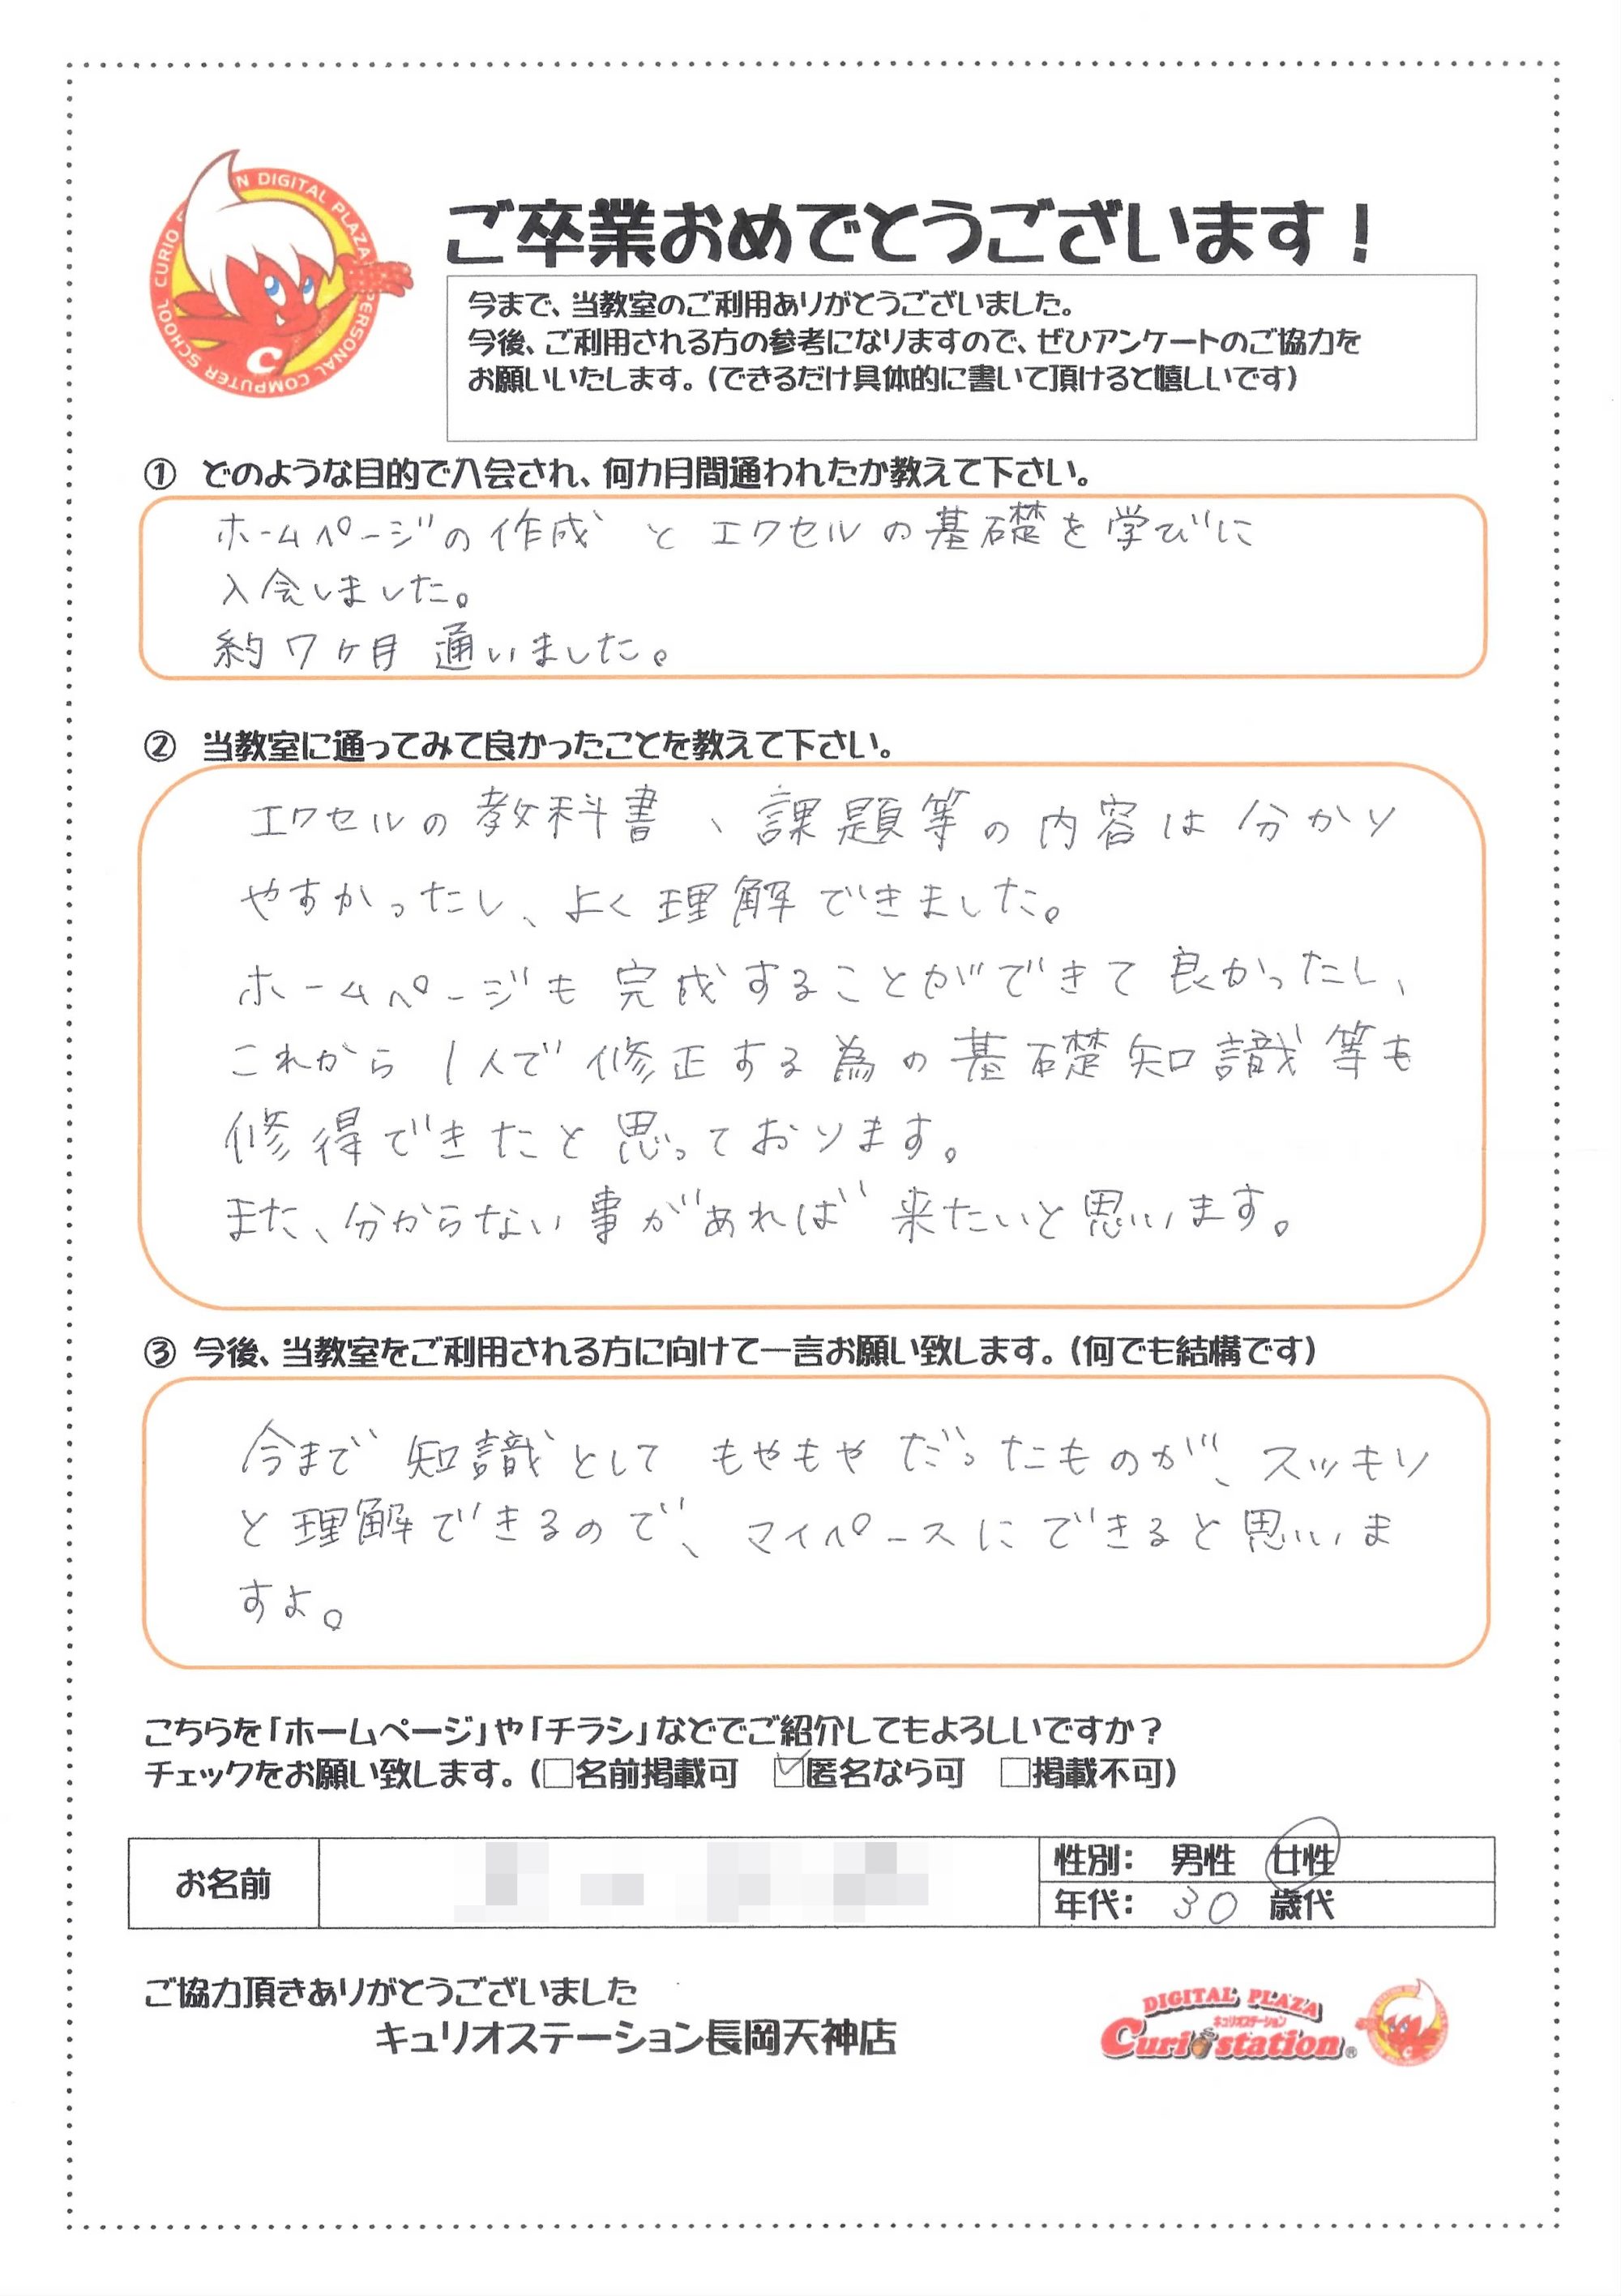 CURIO STATION DIGITAL PLAZA PERSONAL COMPUTER SCHOOL
C
ご卒業おめでとうございます！
今まで、当教室のご利用ありがとうございました。
今後、ご利用される方の参考になりますので、ぜひアンケートのご協力を
お願いいたします。（できるだけ具体的に書いて頂けると嬉しいです）
① どのような目的で入会され、何カ月間通われたか教えて下さい。
ホームページの作成 と エクセルの基礎を学びに
入会しました。
約7ヶ月 通いました。
② 当教室に通ってみて良かったことを教えて下さい。
エクセルの教科書、課題等の内容は分かり
やすかったし、よく理解できました。
ホームページも完成することができて良かったし、
これから1人で修正する為の基礎知識等も
修得できたと思っております。
また、分からない事があれば来たいと思います。
③ 今後、当教室をご利用される方に向けて一言お願い致します。（何でも結構です）
今まで 知識として もやもや だったものが、スッキリ
と理解できるので、マイペースにできると思いま
すよ。
こちらを「ホームページ」や「チラシ」などでご紹介してもよろしいですか？
チェックをお願い致します。（□名前掲載可 ☑匿名なら可 □掲載不可）
お名前
性別： 男性 女性
年代： 30 歳代
ご協力頂きありがとうございました
キュリオステーション長岡天神店
DIGITAL PLAZA
キュリオステーション
Curio station®